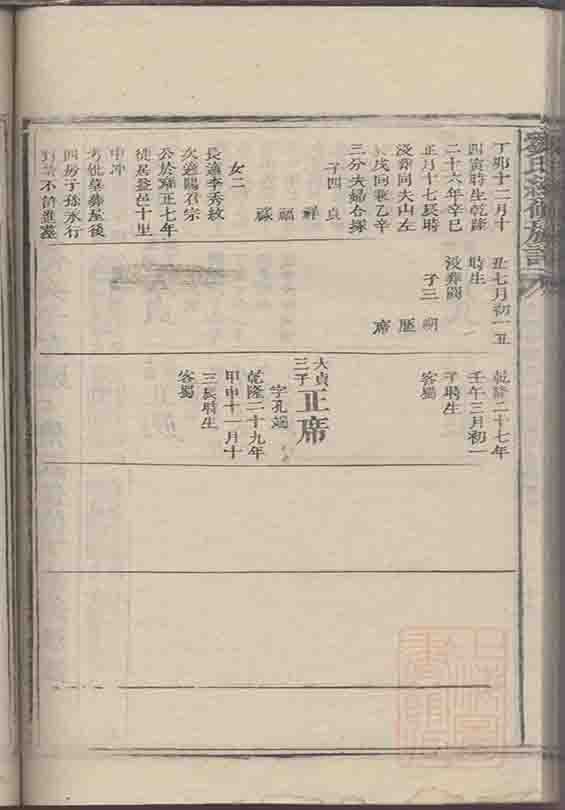 丁卯十二月十
四寅時生乾隆
二十六年辛巳
正月十七辰時
沒葬同大山左
戌向兼乙辛
三分夫婦合墓
子四 貞
祥
福
祿
女二
長適李秀紋
次適陽君宗
公於雍正七年
徙居益邑十里
中冲
考妣墓葬屋後
四房子孫永行
對禁不許進葬
丑七月初一丑
時生
沒葬闕
子三 朔
席
乾隆二十七年
壬午三月初一
子時生
客蜀
大貞
三子
正席
字孔端
乾隆二十九年
甲申十一月十
三辰時生
客蜀
上海圖
書館